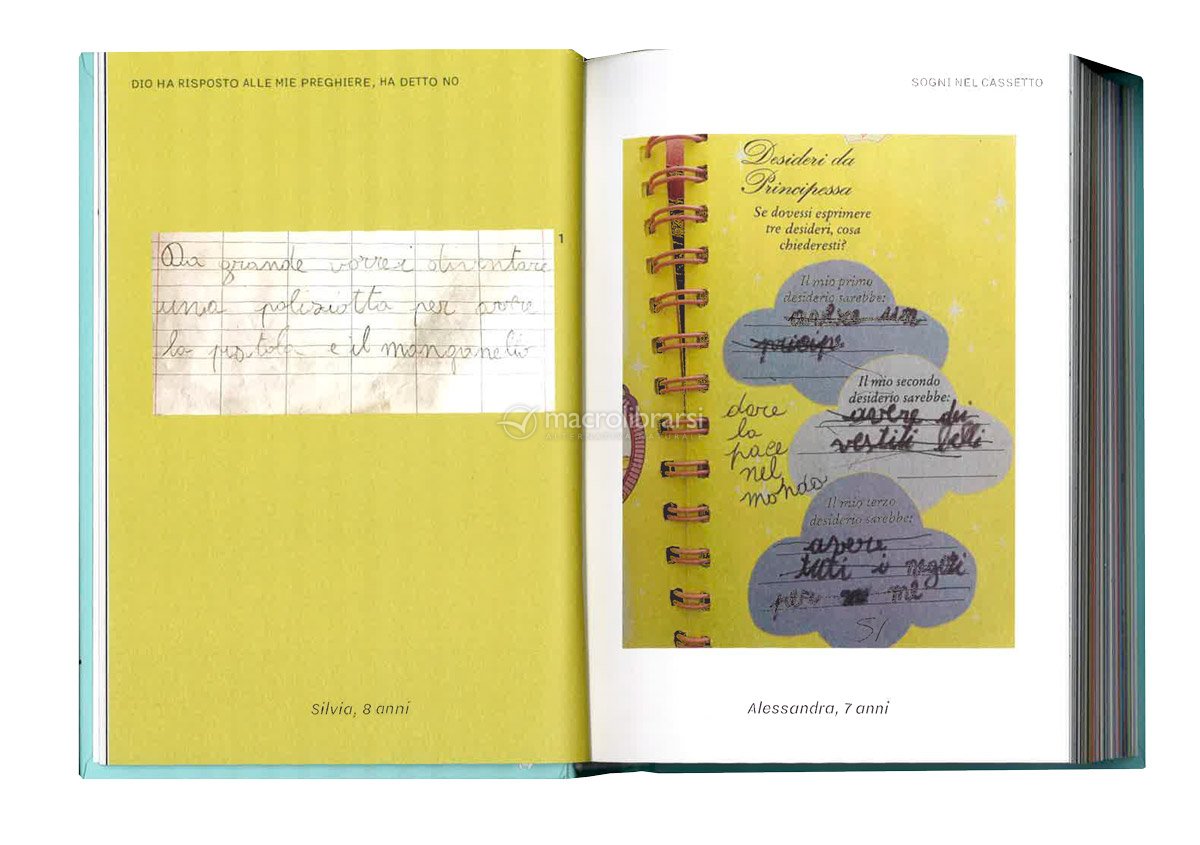 DIO HA RISPOSTO ALLE MIE PREGHIERE, HA DETTO NO
Da grande vorrei diventare
una polisiotta per avere
la pistola e il manganello
1
Silvia, 8 anni
SOGNI NEL CASSETTO
Desideri da
Principessa
Se dovessi esprimere
tre desideri, cosa
chiederesti?
Il mio primo
desiderio sarebbe:
avere un
pricipe
Il mio secondo
desiderio sarebbe:
avere dei
vestiti belli
dare
la
pace
nel
mondo
Il mio terzo
desiderio sarebbe:
avere
tutti i negozi
per me
SI
Alessandra, 7 anni
macrolibrarsi
ALTERNATIVA NATURALE